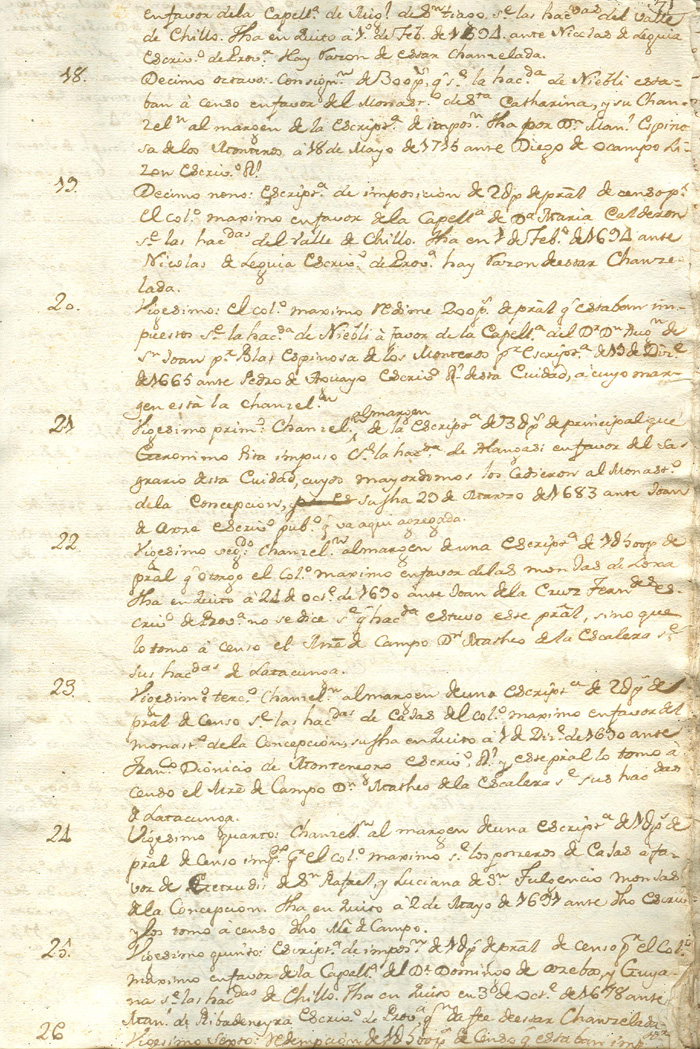 en favor dela Capellª. de
de Chillo. Fha en Quito à 1º. de Feb. de 1694. ante Nicolas de Leguia
Escrivº. de Provª. Hay razon de estar Chanzelada.
18. Decimo octavo: Consignn. de 300ps. qe. sre. la hacda. de Niebli esta-
ban à Censo en favor del Monastº. de Sta. Catharina, y su Chan-
zeln. al margen de la Escriptª. de imposn. Fha por Dn. Manl. Espino
sa delos Monteros à 18 de Mayo de 1715 ante Diego de Ocampo Li-
zon Escrivº. Rl.
19. Decimo nono: Escriptª. de imposicion de 2dps. de pràl de censo pr.
El Colº. maximo en favor dela Capellª. de Dª. Maria Calderon
sre. las hacdas. del Valle de Chillo. Fha en 1 de Febº. de 1694 ante
Nicolas de Leguia Escrivº. de Provª. hay razon de estar Chanze-
lada.
20. Vigesimo: el Colº. maximo redime 200ps. de pràl qe. estaban im-
puestos sre. la hacda. de Niebli à favor de la Capellª. del Dr. Dn. de
Sn. Joan pr. Blas Espinosa de los Monteros pr. Escriptª. de 19 de Dize.
de 1665 ante Pedro de Aguayo Escrivº. Rl. desta Cuidad, a cuyo mar-
gen està la Chanzeln.
21. Vigesimo primº. Chanzeln. al margen de la Escriptª. de 3dps. de principal que
Geronimo Pita impuso sre. la hacda. de Alangasi en favor del Sa-
grario desta Cuidad, cuyos mayordomos los cedieron al Monastº.
dela Concepcion, su fha 29 de Marzo de 1683 ante Joan
de Arre Escrivº. pubº. qe. va aqui agregada.
22. Vigesimo segdo: Chanzeln. al margen de una Escriptª. de 1d500ps de
pràl qe. otorgo el Colº. maximo en favor delas monjas de Loxa
Fha en Quito à 24 de Octe. de 1690 ante Joan dela Cruz Fernandez Es-
crivº. de Provª. no se dice sre. qe. hacda. estuvo este pràl, sino que
lo tomo à censo el Mre. de Campo Dn. Matheo de la Escalera sre.
sus hacdas. de Latacunga.
23. Vigesimº. tercº. Chanzeln. al margen de una Escriptª. de 2dps. de
pràl de Censo sre. las hacdas. de Casas del Colº. maximo en favor del
monastº. de la Concepcion, su fha en Quito à 1 de Dize. de 1690 ante
Francº. Dionicio de Montenegro Escrivº. Rl. y este pràl lo tomo à
censo el Mre. de Campo Dn. Matheo dela Escalera sre. sus hacdas
de Latacunga.
24 Vigesimo quarto: Chanzeln. al margen de una Escriptª. de 1dps. de
pràl de Censo pr. el Colº. maximo sre. los potreros de Casas à fa-
vor de Gertrudis de Sn. Rafael, y Luciana de Sn. Fulgencio monjas
de la Concepcion. Fha en Quito à 2 de Mayo de 1691 ante dho Escrivº
y los tomò à censo dho Mre. de Campo.
25. Vigesimo quinto: Escriptª. de imposn. de 1dps. de pràl de Censo pr. el Colº.
maximo en favor de la Capellª. del Dr. Domingo de
sre. las hacdas. de Chillo. Fha en Quito en 30 de Octe. de 1678 ante
Manl. de Ribadeneyra Escrivº. de Provª. qn. dà fe de estar Chanzelada.
26 Vigesimo Sexto: redempcion de 1d500ps. de Censo qe. estaban